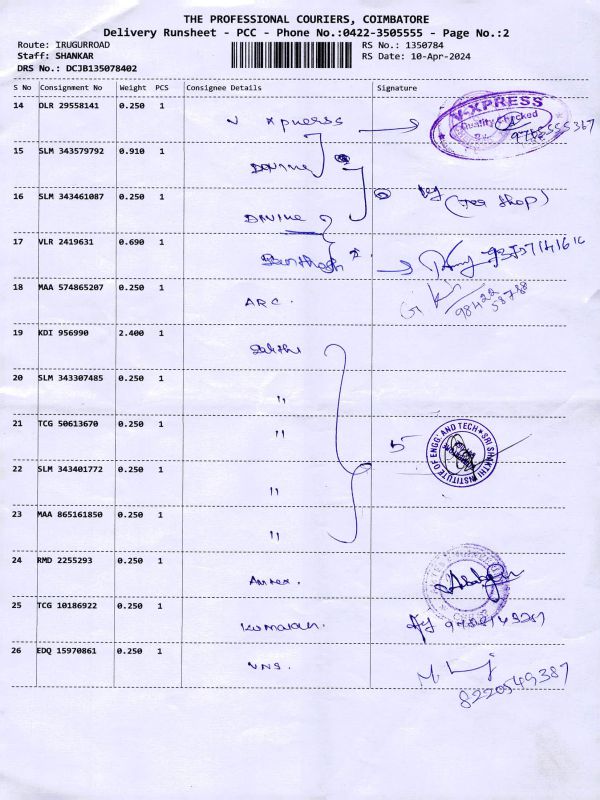 THE PROFESSIONAL COURIERS, COIMBATORE
Delivery Runsheet - PCC - Phone No.:0422-3505555 - Page No.:2
Route: IRUGURROAD RS No.: 1350784
Staff: SHANKAR RS Date: 10-Apr-2024
DRS No.: DCJB135078402
S No Consignment No Weight PCS Consignee Details Signature
14 DLR 29558141 0.250 1 V Xpresss V-XPRESS
Quality Checked
15 SLM 343579792 0.910 1 Divine
16 SLM 343461087 0.250 1 Divine (Tea Shop)
17 VLR 2419631 0.690 1 Santhosh
18 MAA 574865207 0.250 1 ARC. 98422
58788
19 KDI 956990 2.400 1 Sakthi
20 SLM 343307485 0.250 1 "
21 TCG 50613670 0.250 1 " 5 SRI SHAKTHI INSTITUTE OF ENGG. AND TECH
22 SLM 343401772 0.250 1 "
23 MAA 865161850 0.250 1 "
24 RMD 2255293 0.250 1
25 TCG 10186922 0.250 1 Kumaran.
26 EDQ 15970861 0.250 1 VNS.
8220549387